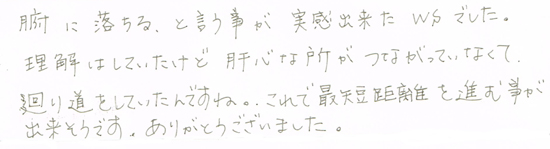 腑に落ちる、と言う事が 実感出来た WSでした。
理解はしていたけど 肝心な所が つながっていなくて、
廻り道をしていたんですね。これで最短距離を進む事が
出来そうです。ありがとうございました。